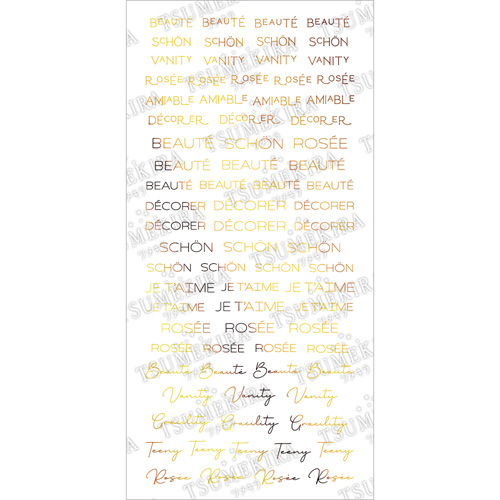 BEAUTÉ BEAUTÉ BEAUTÉ BEAUTÉ
SCHÖN SCHÖN SCHÖN SCHÖN
VANITY VANITY VANITY VANITY
ROSÉE ROSÉE ROSÉE ROSÉE ROSÉE
AMIABLE AMIABLE AMIABLE AMIABLE
DÉCORER DÉCORER DÉCORER
BEAUTÉ SCHÖN ROSÉE
BEAUTÉ BEAUTÉ BEAUTÉ
BEAUTÉ BEAUTÉ BEAUTÉ BEAUTÉ
DÉCORER DÉCORER DÉCORER
DÉCORER DÉCORER DÉCORER
SCHÖN SCHÖN SCHÖN
SCHÖN SCHÖN SCHÖN SCHÖN
JE T'AIME JE T'AIME JE T'AIME
JE T'AIME JE T'AIME JE T'AIME
ROSÉE ROSÉE ROSÉE
ROSÉE ROSÉE ROSÉE ROSÉE
Beauté Beauté Beauté Beauté
Vanity Vanity Vanity
Gracility Gracility Gracility
Teeny Teeny Teeny Teeny Teeny
Rosée Rosée Rosée Rosée
TSUMEKIRA
ツメキラ